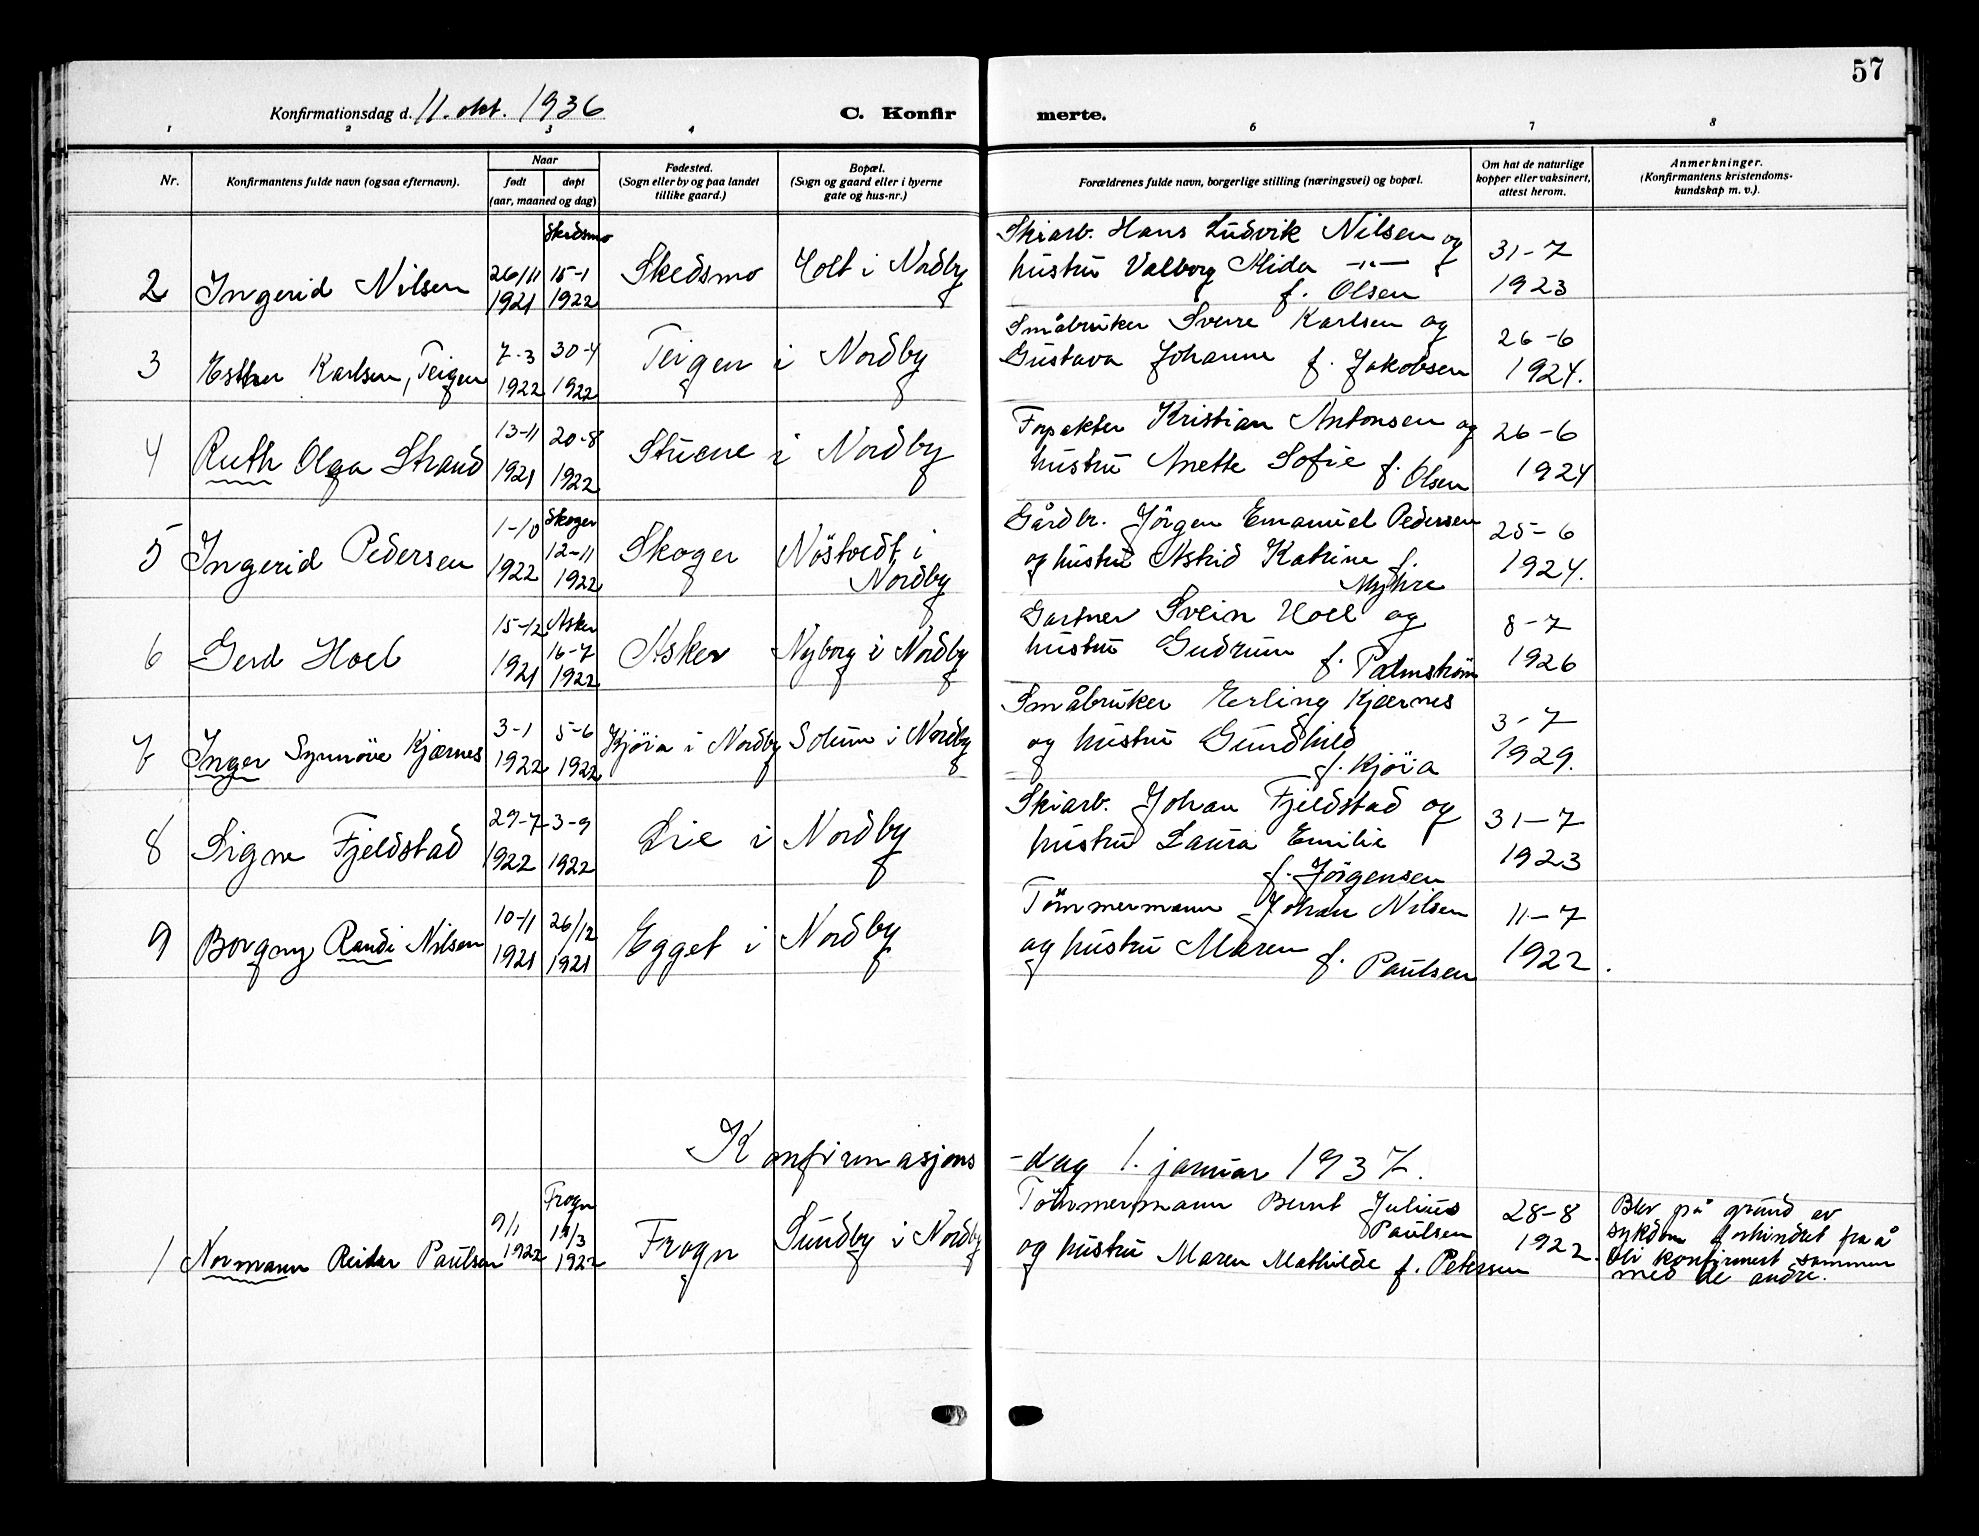 57
Konfirmationsdag d. 11. okt. 1936
C. Konfir merte.
1 2 3 4 6 7 8
Nr.
Konfirmantens fulde navn (ogsaa efternavn).
Naar
født døpt
(aar, maaned og dag)
Fødested.
(Sogn eller by og paa landet
tillike gaard.)
Bopæl.
(Sogn og gaard eller i byerne
gate og hus-nr.)
Forældrenes fulde navn, borgerlige stilling (næringsvei) og bopæl.
Om hat de naturlige
kopper eller vaksinert,
attest herom.
Anmerkninger.
(Konfirmantens kristendoms-
kundskap m. v.).
2 Ingerid Nilsen
26/11
1921
Skedsmo
15-1
1922
Skedsmo
Holt i Nordby
Skiarb. Hans Ludvik Nilsen og
hustru Valborg Alida -"-
f. Olsen
31-7
1923
3 Esther Karlsen, Teigen
7-3
1922
30-4
1922
Teigen i Nordby
Småbruker Sverre Karlsen og
Gustava Johanne f. Jakobsen
26-6
1924.
4 Ruth Olga Strand
13-11
1921
20-8
1922
Stuene i Nordby
Forpakter Kristian Antonsen og
hustru Anette Sofie f. Olsen
26-6
1924
5 Ingerid Pedersen
1-10
1922
Skoger
12-11
1922
Skoger
Nöstvedt i
Nordby
Gårdbr. Jörgen Emanuel Pedersen
og hustru Astrid Katrine f.
Myhre
25-6
1924.
6 Gerd Hoel
15-12
1921
Asker
16-7
1922
Asker
Nyborg i Nordby
Gartner Svein Hoel og
hustru Gudrun f. Palmström
8-7
1926
7 Inger Synnöve Kjærnes
3-1
1922
5-6
1922
Kjöia i Nordby
Solum i Nordby
Småbruker Erling Kjærnes
og hustru Gundhild
f. Kjöia
3-7
1929.
8 Signe Fjeldstad
29-7
1922
3-9
1922
Lie i Nordby
Skiarb. Johan Fjeldstad og
hustru Laura Emilie
f. Jörgensen
31-7
1923
9 Borgny Randi Nilsen
10-11
1921
26/12
1921
Egget i Nordby
Tömmermann Johan Nilsen
og hustru Maren f. Paulsen
11-7
1922.
Konfirmasjons-dag 1. januar 1937.
1 Normann Reidar Paulsen
9/1
1922
Frogn
19/3
1922
Frogn
Sundby i Nordby
Tömmermann Bernt Julius
Paulsen
og hustru Maren Mathilde f. Petersen
28-8
1922.
Blev på grund av
sykdom forhindret fra å
bli konfirmert sammen
med de andre.